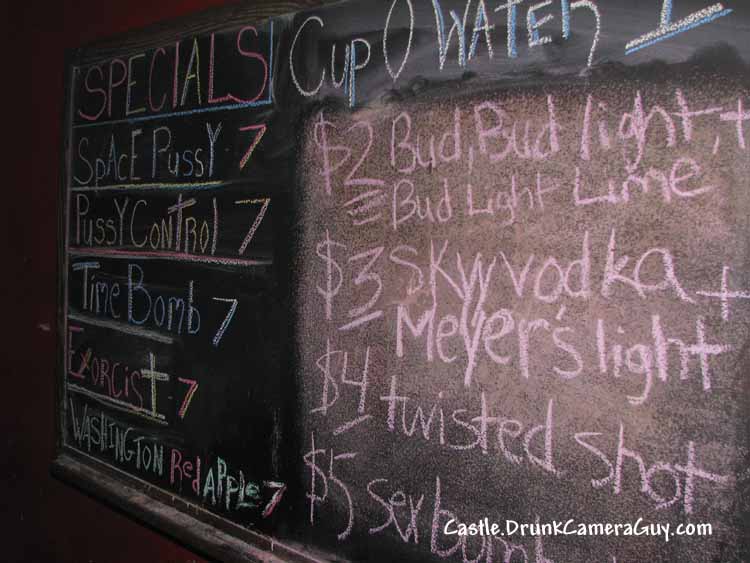 SPECIALS
SPACE PUSSY 7
PUSSY CONTROL 7
TIME BOMB 7
EXORCIST 7
WASHINGTON Red APPLE 7
Cup O WATER 1
$2 Bud, Bud light, +
Bud Light Lime
$3 Skyy vodka +
Meyer's light
$4 twisted shot
$5 sex bomb
Castle.DrunkCameraGuy.com